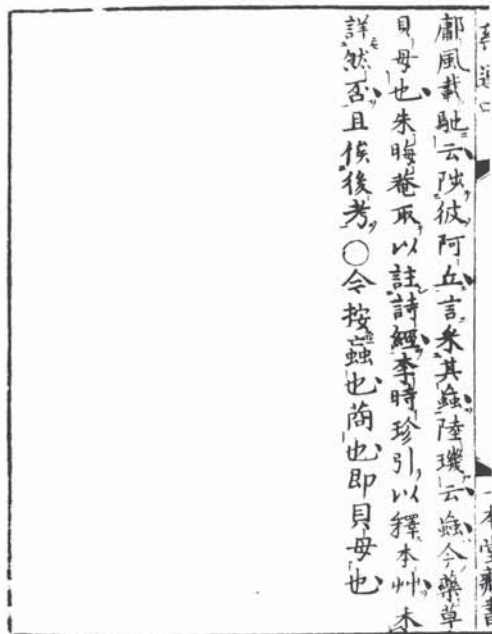 一本堂藏書
鄘風載馳云陟彼阿丘言采其蝱陸璣云蝱今藥草
貝母也朱晦菴取以註詩經李時珍引以釋本艸未
詳然否且俟後考○今按蝱也莔也即貝母也